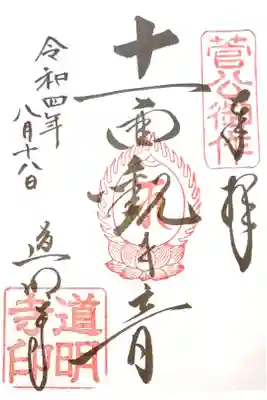 菅公御作
奉拝
十一面観世音
道明寺
道明寺印
令和四年
八月十八日